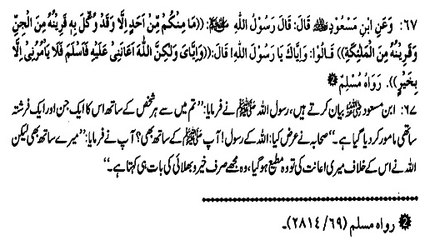 ٦٧: وَعَنِ ابْنِ مَسْعُودٍ ﷺ قَالَ: قَالَ رَسُولُ اللهِ ﷺ: ((مَا مِنْكُمْ مِنْ اَحَدٍ اِلَّا وَقَدْ وُكِّلَ بِهِ قَرِيْنُهُ مِنَ الْجِنِّ
وَقَرِيْنُهُ مِنَ الْمَلٰئِكَةِ)) قَالُوْا: وَاِيَّاكَ يَا رَسُوْلَ اللهِ! قَالَ: ((وَاِيَّايَ وَلٰكِنَّ اللهَ اَعَانَنِيْ عَلَيْهِ فَاَسْلَمَ فَلَا يَاْمُرُنِيْ اِلَّا
بِخَيْرٍ)). رَوَاهُ مُسْلِمٌ
٦٧: ابن مسعود بیان کرتے ہیں، رسول اللہ ﷺ نے فرمایا: ”تم میں سے ہر شخص کے ساتھ اس کا ایک جن اور ایک فرشتہ
ساتھی مامور کر دیا گیا ہے۔“ صحابہ نے عرض کیا: اللہ کے رسول! آپ ﷺ کے ساتھ بھی؟ آپ نے فرمایا: ”میرے ساتھ بھی لیکن
اللہ نے اس کے خلاف میری اعانت کی تو وہ مطیع ہو گیا، وہ مجھے صرف خیر و بھلائی کی بات ہی کہتا ہے۔“
رواه مسلم (٦٩/ ٢٨١٤)۔